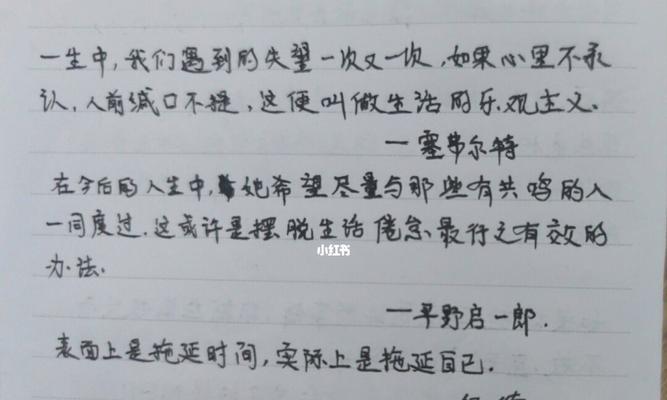 一生中，我们遇到的失望一次又一次，如果心里不承
认，人前缄口不提，这便叫做生活的乐观主义。
—塞弗尔特
在今后的人生中，她希望尽量与那些有共鸣的人
一同度过。这或许是摆脱生活倦怠最行之有效的
办法。
小红书
—平野启一郎．
表面上是拖延时间，实际上是拖延自己．